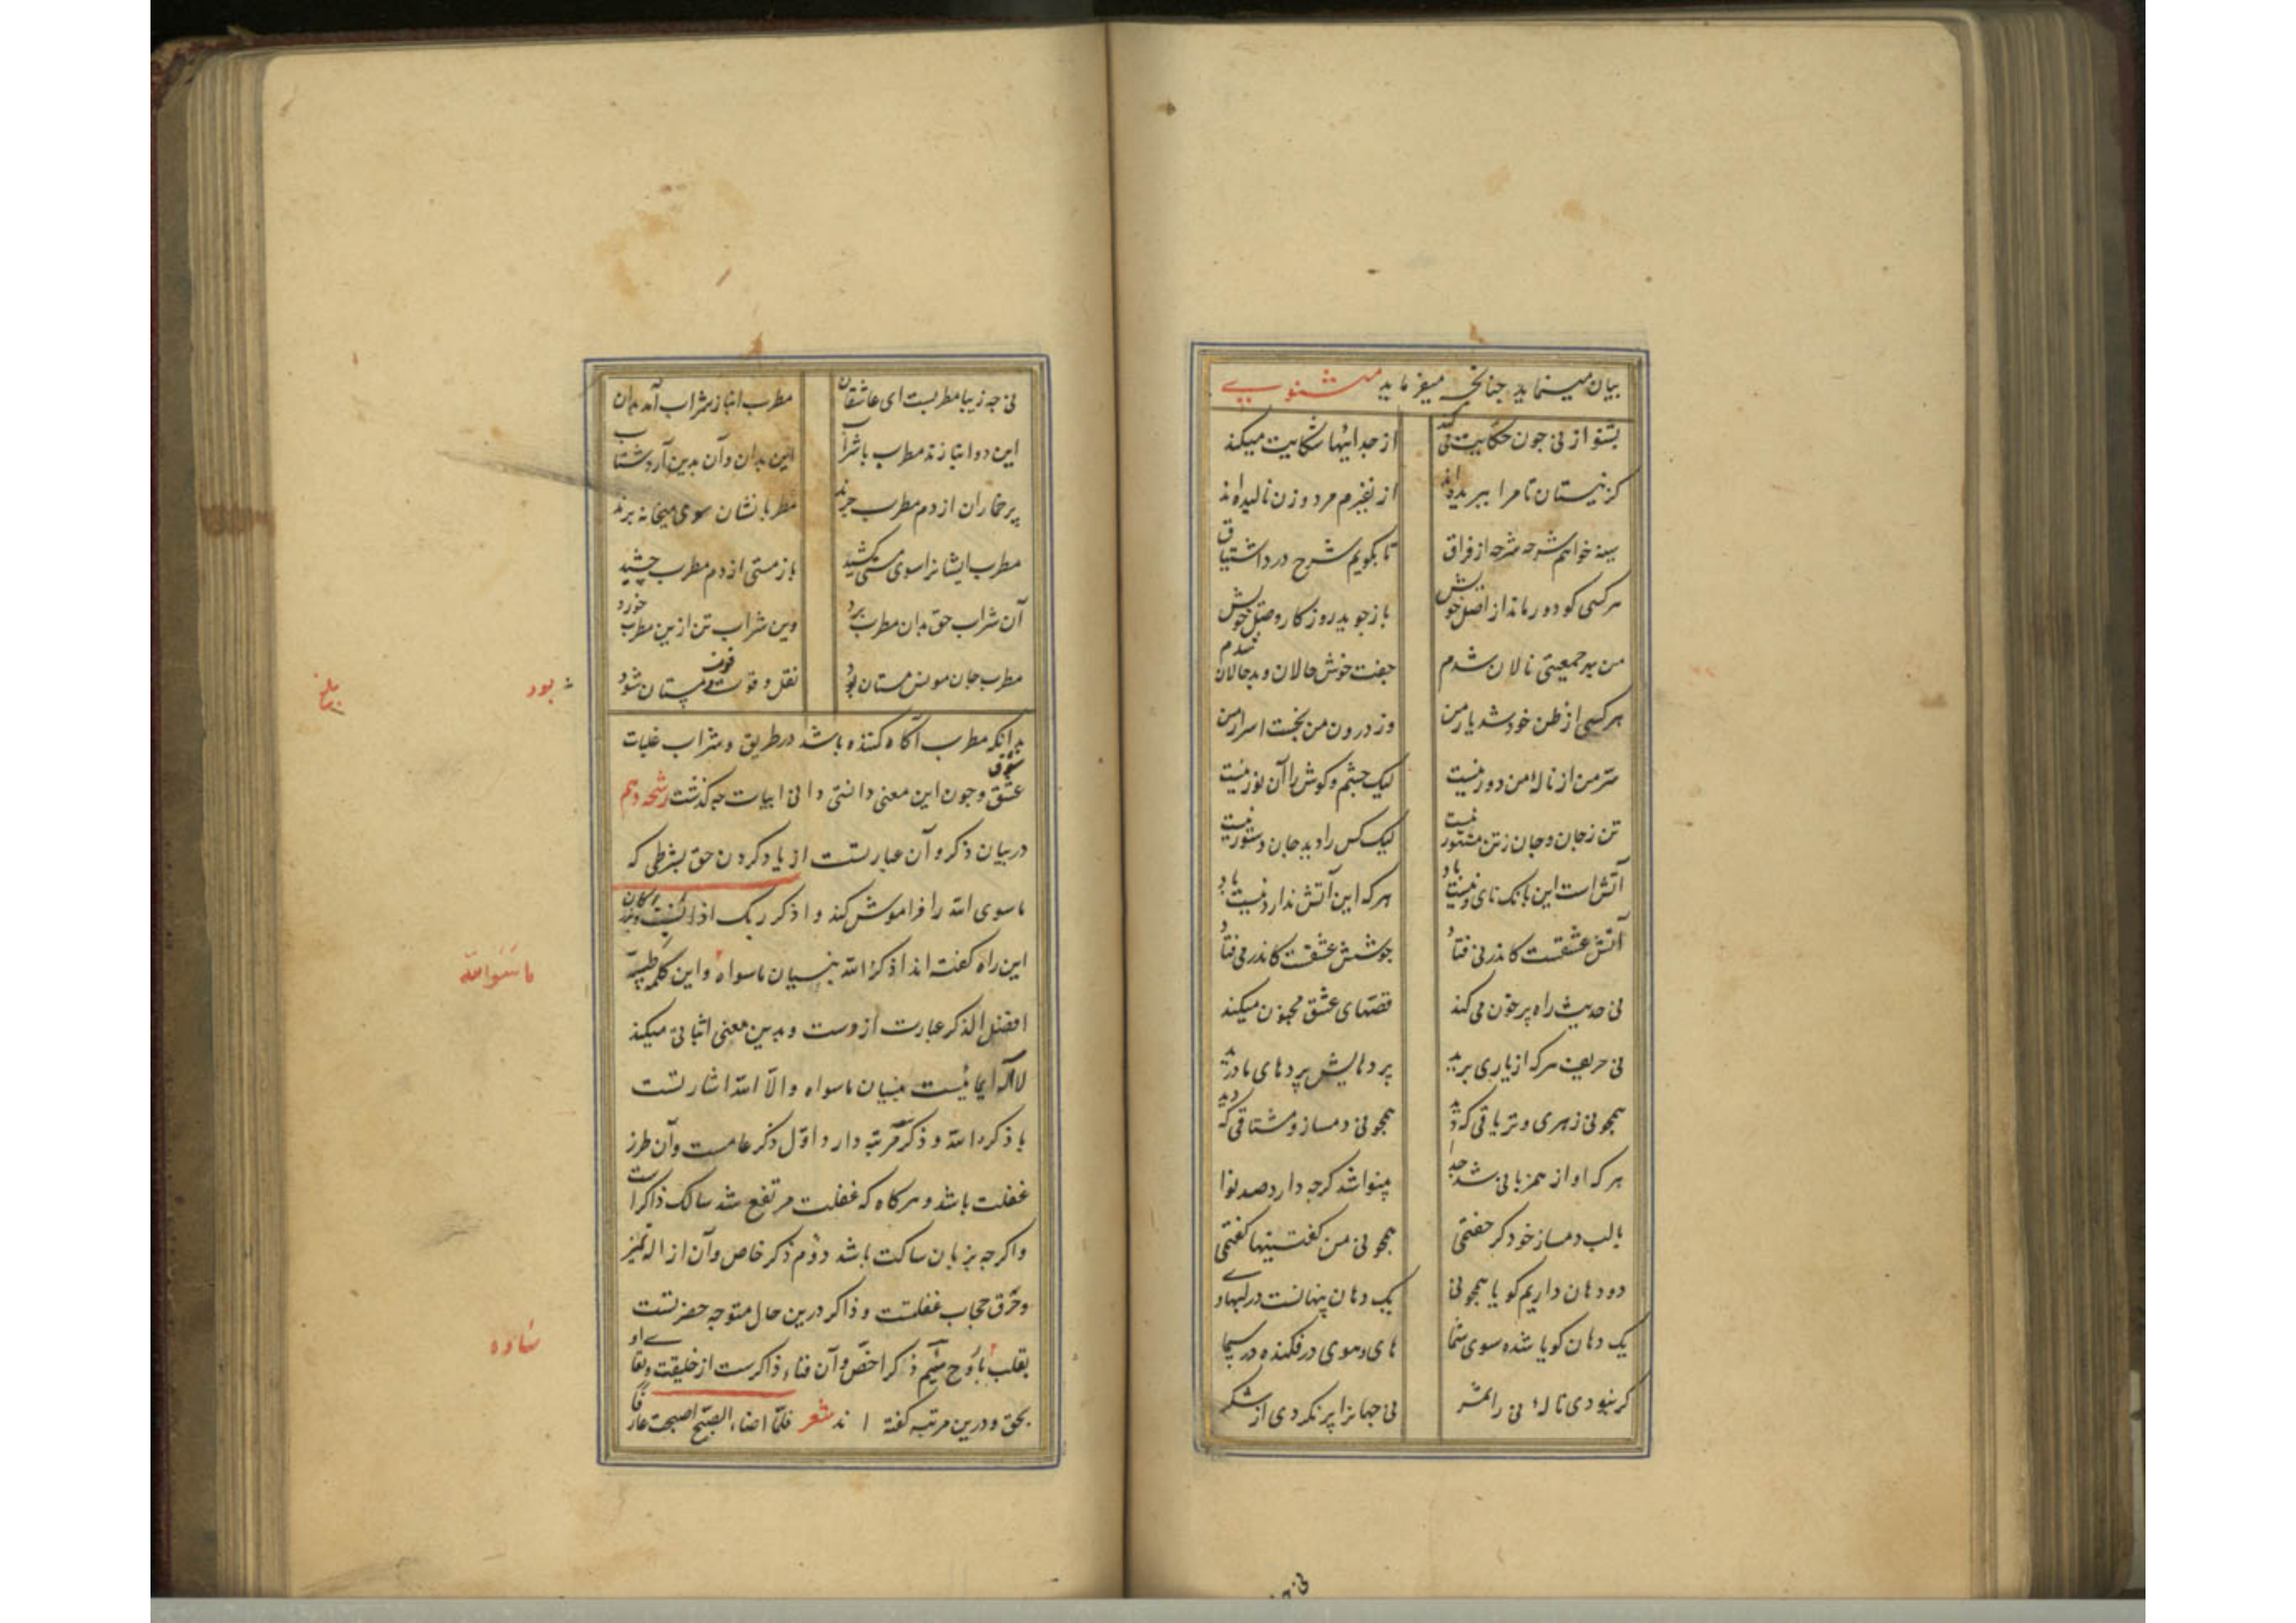 بیان مینماید جنانجه میفرماید مثنوی
بشنو از نی جون حکایت می کند از جدائیها شکایت میکند
کز نیستان تا مرا ببریده اند از نفیرم مرد و زن نالیده اند
سینه خواهم شرحه شرحه از فراق تا بکویم شرح درد اشتیاق
هر کسی کو دور ماند از اصل خویش باز جوید روزکار وصل خویش
من بهر جمعیتی نالان شدم جفت خوش حالان و بدحالان شدم
هر کسی از ظن خود شد یار من وز درون من نجست اسرار من
سر من از نالهٔ من دور نیست لیک جشم و کوش را آن نور نیست
تن ز جان و جان ز تن مستور نیست لیک کس را دید جان دستور نیست
آتش است این بانک نای و نیست باد هر که این آتش ندارد نیست باد
آتش عشقست کاندر نی فتاد جوشش عشقست کاندر می فتاد
نی حدیث راه پر خون می کند قصهای عشق مجنون میکند
نی حریف هر که از یاری برید پردهایش پردهای ما درید
همجو نی زهری و تریاقی که دید همجو نی دمساز و مشتاقی که دید
هر که او از همزبانی شد جدا بینوا شد کرجه دارد صد نوا
با لب دمساز خود کر جفتمی همجو نی من کفتنیها کفتمی
دو دهان داریم کویا همجو نی یک دهان پنهانست در لبهای وی
یک دهان کویا شده سوی شما های و هوی در فکنده در سما
کر نبودی نالهٔ نی را ثمر نی جهانرا پر نکردی از شکر
نی جه زیبا مطربست ای عاشقان مطرب انباز شراب آمد بدان
این دو انبازند مطرب با شراب این بدان و آن بدین آرد شتاب
پر خماران از دم مطرب جرند مطربانشان سوی میخانه برند
مطرب ایشانرا سوی مستی کشید باز مستی از دم مطرب چشید
آن شراب حق بدان مطرب برد وین شراب تن ازین مطرب خورد
مطرب جان مونس مستان بود نقل و قوت و قوت مستان شود
بود
بدانکه مطرب آکاه کننده باشد در طریق و شراب غلبات
عشق وجون این معنی دانستی دانی ابیات جه کذشت رشحه دهم
در بیان ذکر و آن عبارتست از یاد کردن حق بشرطی که
ماسوی الله را فراموش کند و اذکر ربک اذا نسیت
این راه کفته اند اذکر الله بنسیان ماسواه و این کلمه طیبه
ماسوالله
افضل الذکر عبارت ازوست و بدین معنی اثباتی میکند
لا اله ایمائیست بنسیان ماسواه و الا الله اشارتست
با ذکر الله و ذکر مرتبه دارد اول ذکر عامست و آن طرز
غفلت باشد و هرکاه که غفلت مرتفع شد سالک ذاکر است
و اکرجه بزبان ساکت باشد دوم ذکر خاص و آن ازاله تمیز
و خرق حجاب غفلتست و ذاکر درین حال متوجه حضرتست
بقلب یا روح سیم ذکر اخص و آن فناء ذاکرست از خلیقت و بقای او
بحق و درین مرتبه کفته اند شعر فلما اضاء الصبح اصبحت عارفا